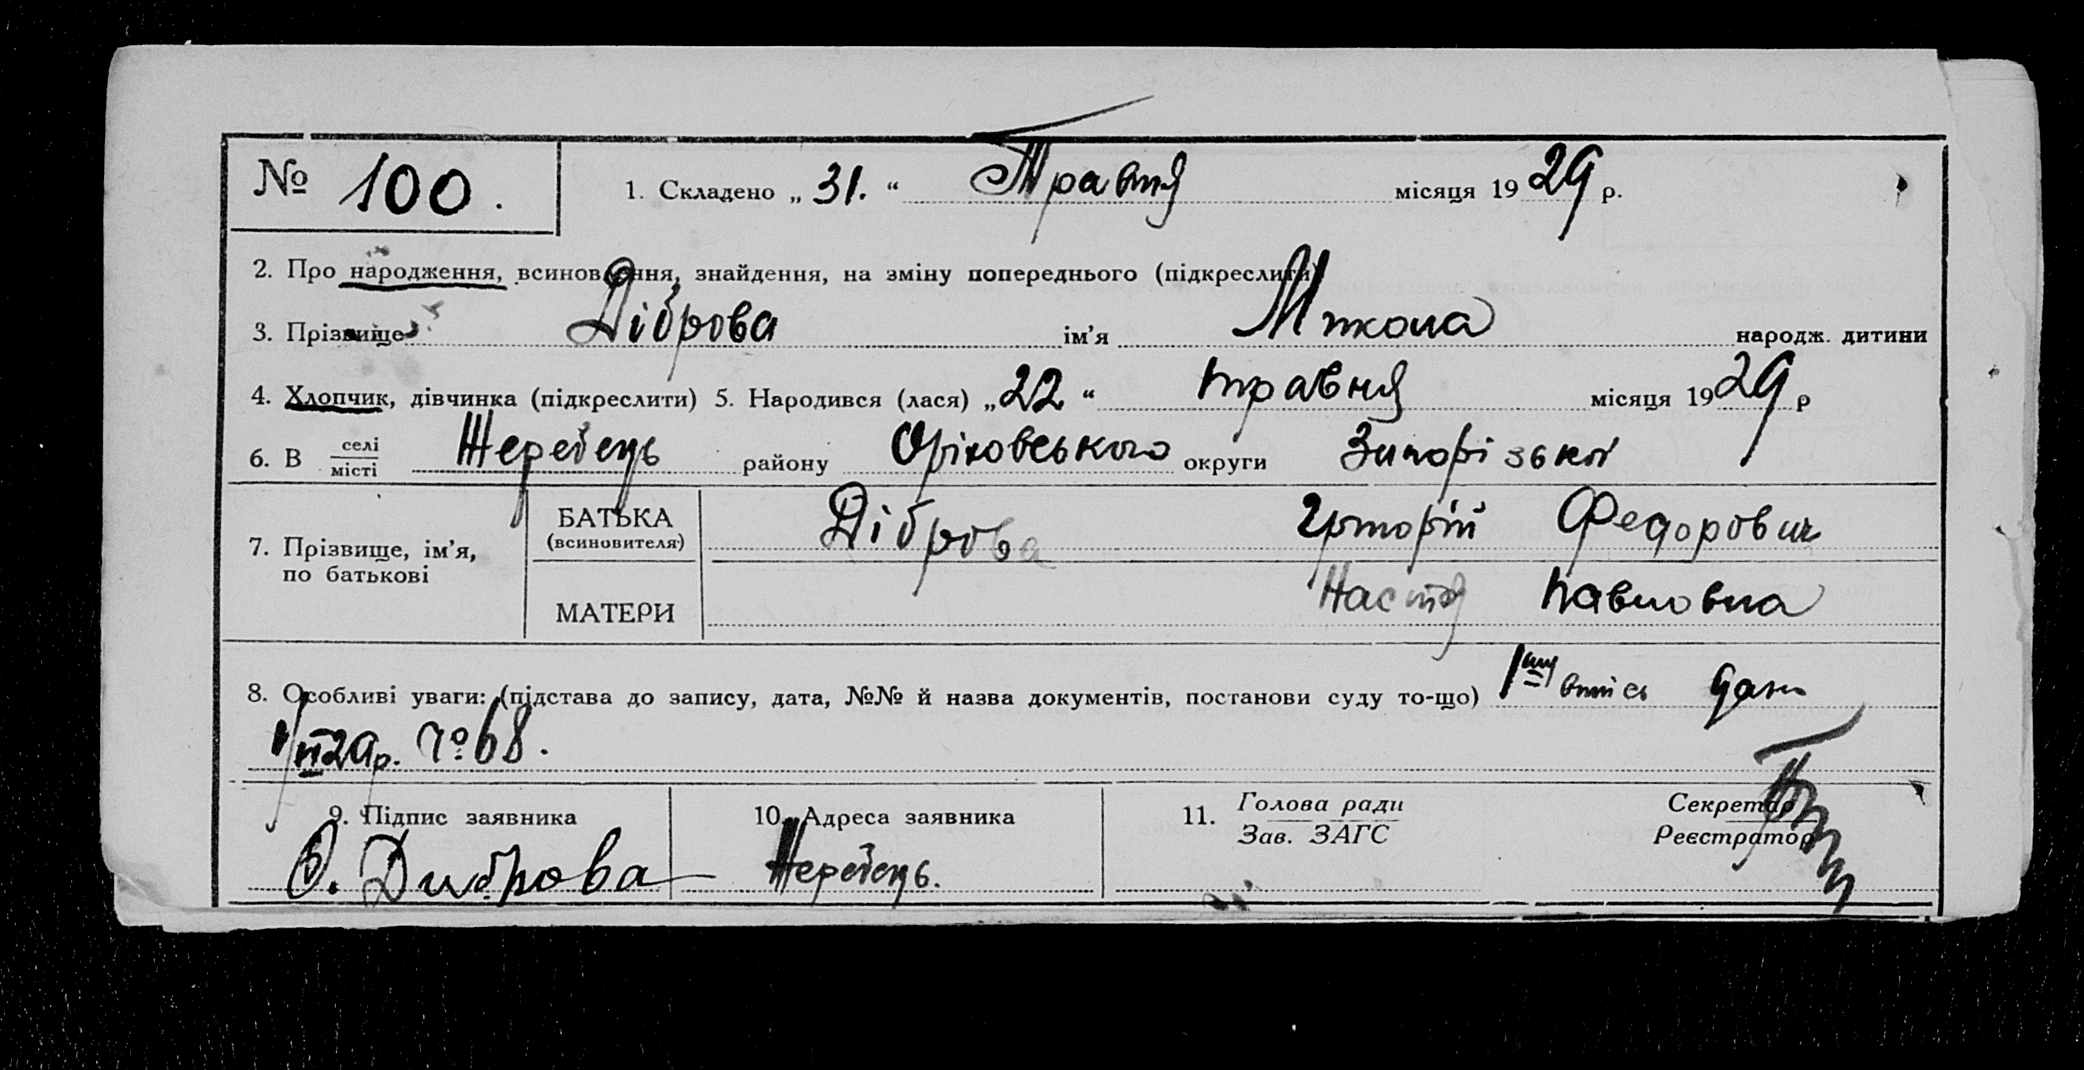 № 100. 1. Складено „31.“ Травня місяця 1929 р.
2. Про народження, всиновлення, знайдення, на зміну попереднього (підкреслити)
3. Прізвище Діброва ім’я Микола народж. дитини
4. Хлопчик, дівчинка (підкреслити) 5. Народився (лася) „22“ травня місяця 1929 р
6. В селі місті Жеребець району Оріховського округи Запорізької
7. Прізвище, ім’я, по батькові
БАТЬКА (всиновителя) Діброва Григорій Федорович
МАТЕРИ Настя Павловна
8. Особливі уваги: (підстава до запису, дата, №№ й назва документів, постанови суду то-що) випись
29р. № 68.
9. Підпис заявника 10. Адреса заявника 11. Голова ради Секретар
Зав. ЗАГС Реєстратор
Диброва Жеребець.